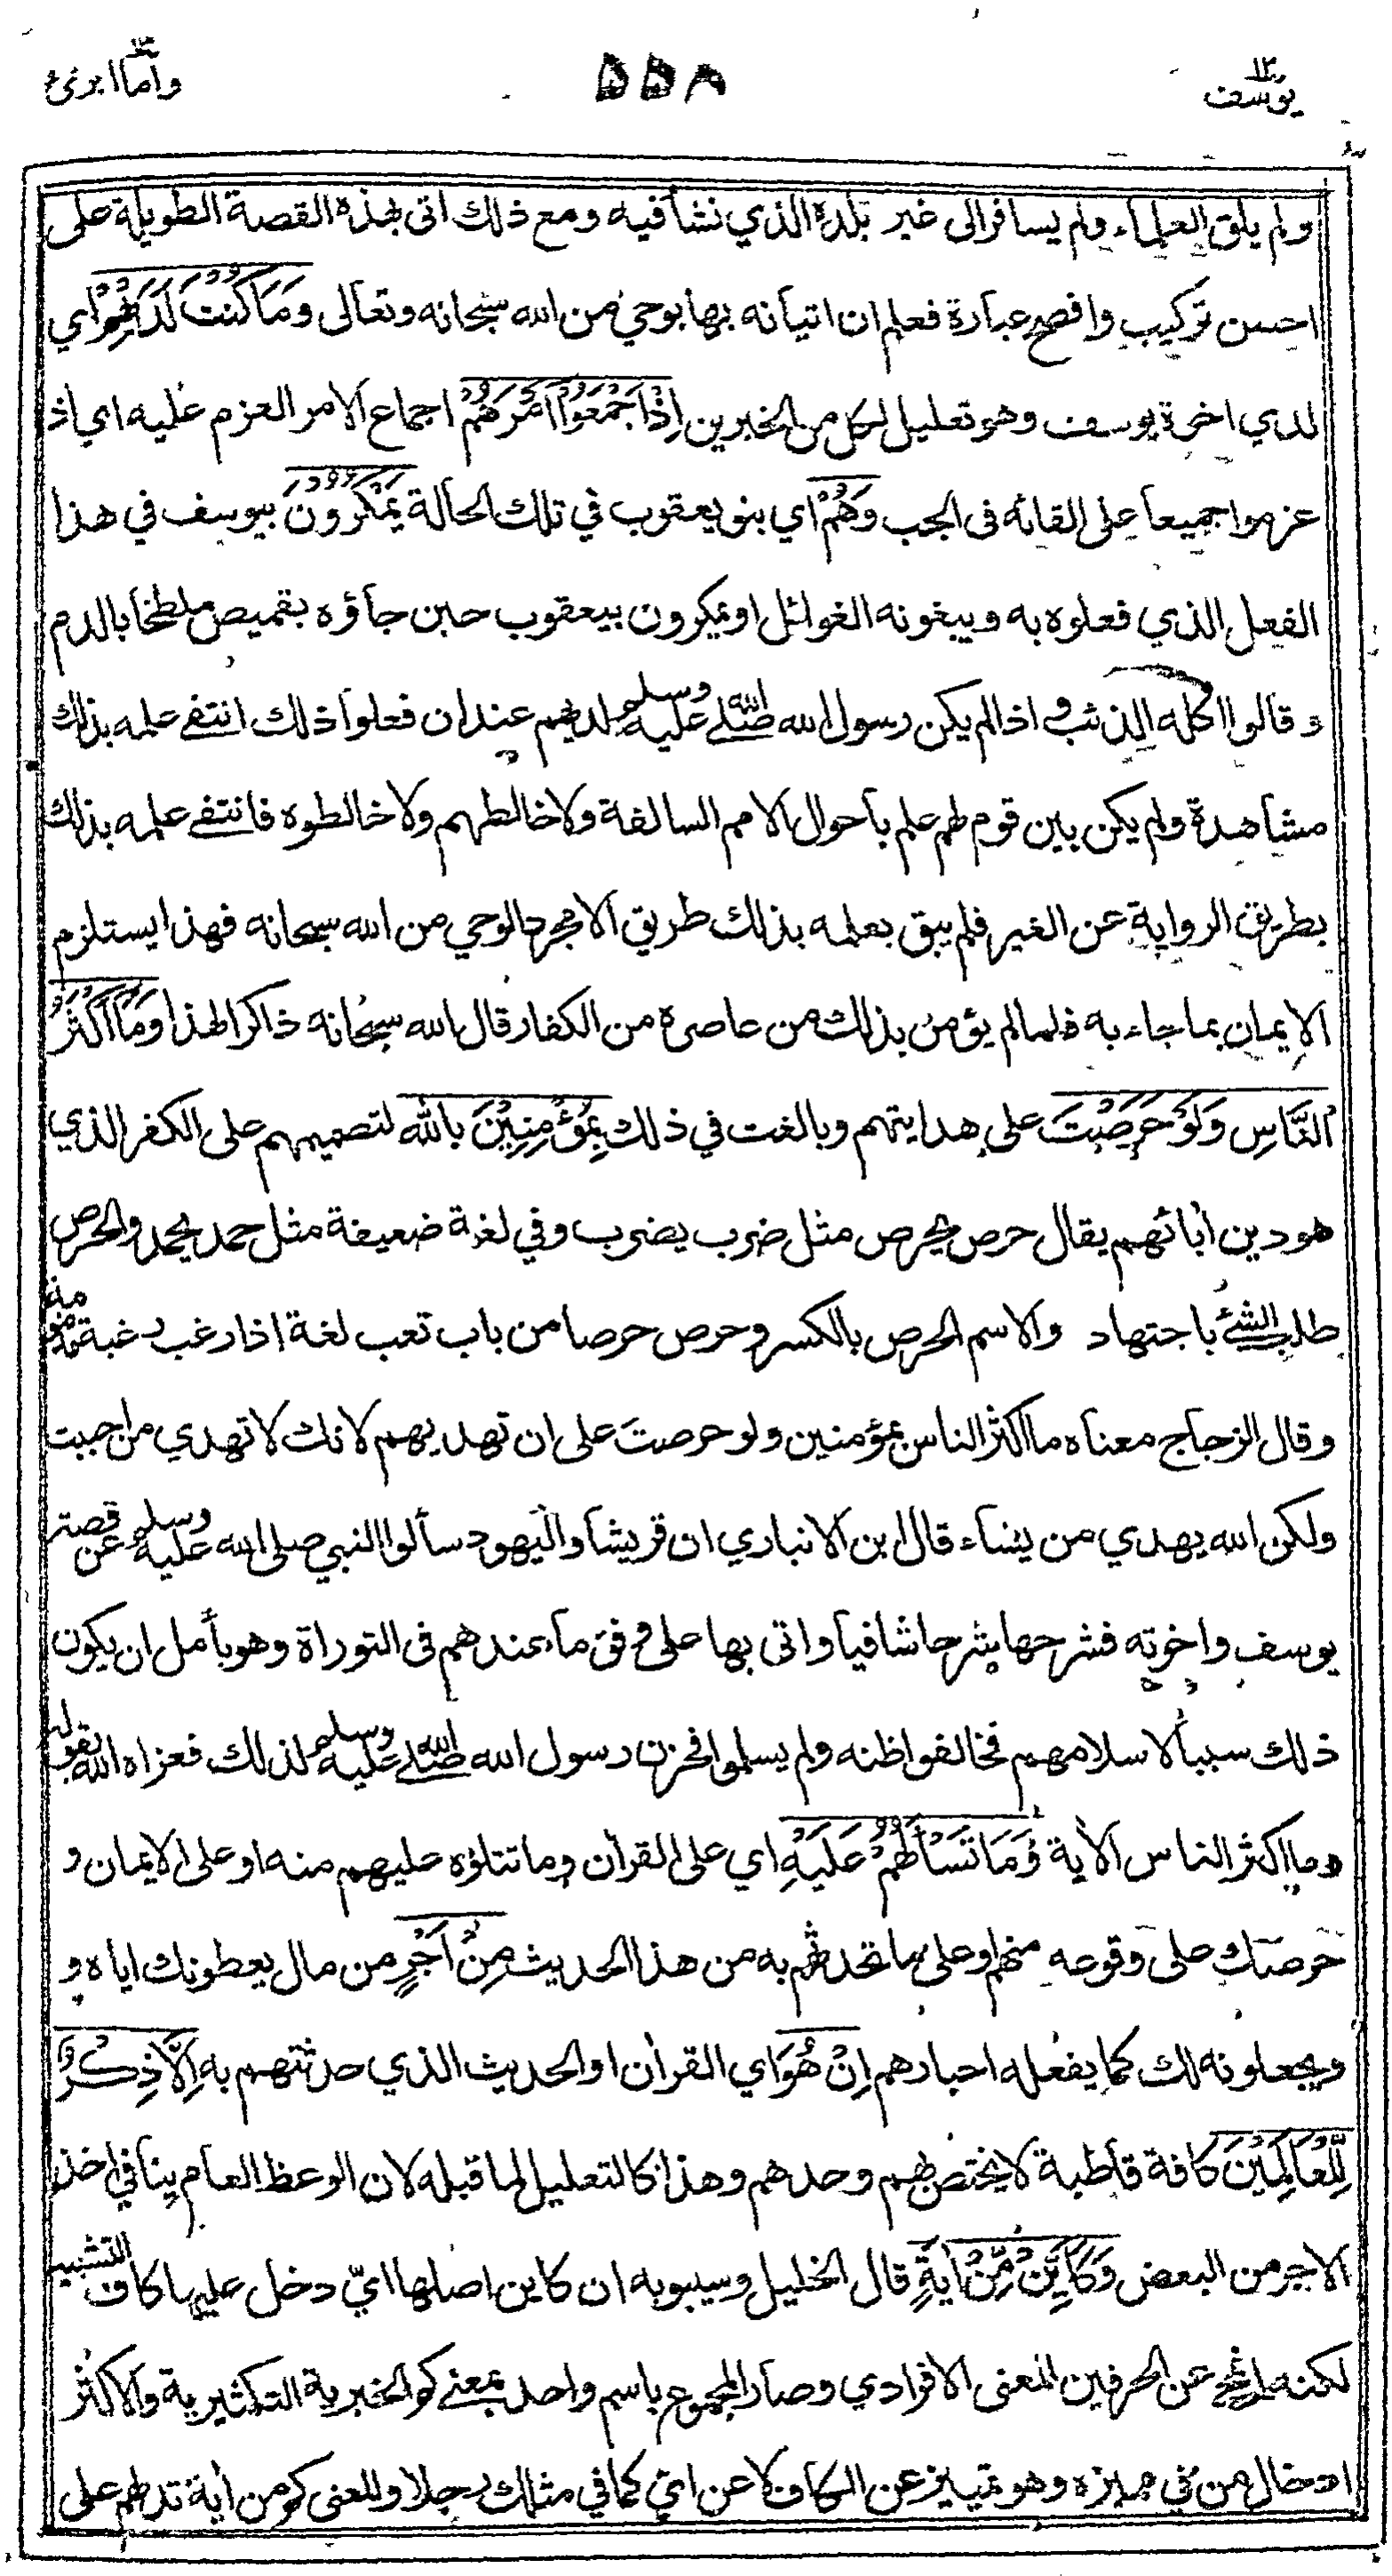 يوسف ١٢
٥٥٨
وما ابرئ ١٣
ولم يلق العلماء ولم يسافر الى غير بلده الذي نشأ فيه ومع ذلك اتى بهذه القصة الطويلة على
احسن تركيب وافصح عبارة فعلم ان اتيانه بها بوحي من الله سبحانه وتعالى وَمَا كُنْتَ لَدَيْهِمْ اي
لدي اخوة يوسف وهو تعليل لكل من الخبرين اِذْ اَجْمَعُوْا اَمْرَهُمْ اجماع الامر العزم عليه اي اذ
عزموا جميعا على القائه فى الجب وَهُمْ اي بنو يعقوب في تلك الحالة يَمْكُرُوْنَ بيوسف في هذا
الفعل الذي فعلوه به ويبغونه الغوائل او يمكرون بيعقوب حين جاؤه بقميص ملطخا بالدم
وقالوا اكله الذئب واذا لم يكن رسول الله صلى الله عليه وسلم لديهم عند ان فعلوا ذلك انتفى علمه بذلك
مشاهدة ولم يكن بين قوم لهم علم باحوال الامم السالفة ولا خالطهم ولا خالطوه فانتفى علمه بذلك
بطريق الرواية عن الغير فلم يبق بعلمه بذلك طريق الا مجرد الوحي من الله سبحانه فهذا يستلزم
الايمان بما جاء به فلما لم يؤمن بذلك من عاصره من الكفار قال الله سبحانه ذاكرا لهذا وَمَا اَكْثَرُ
النَّاسِ وَلَوْ حَرَصْتَ على هدايتهم وبالغت في ذلك بِمُؤْمِنِيْنَ بالله لتصميمهم على الكفر الذي
هو دين أبائهم يقال حرص يحرص مثل ضرب يضرب وفي لغة ضعيفة مثل حمد يحمد والحرص
طلب الشئ باجتهاد والاسم الحرص بالكسر وحرص حرصا من باب تعب لغة اذا رغب رغبة مذمومة
وقال الزجاج معناه ما اكثر الناس بمؤمنين ولو حرصت على ان تهديهم لانك لا تهدي من احببت
ولكن الله يهدي من يشاء قال ابن الانباري ان قريشا واليهود سألوا النبي صلى الله عليه وسلم عن قصة
يوسف واخوته فشرحها شرحا شافيا واتى بها على وفق ما عندهم فى التوراة وهو يأمل ان يكون
ذلك سببا لاسلامهم فخالفوا ظنه ولم يسلموا فحزن رسول الله صلى الله عليه وسلم لذلك فعزاه الله بقوله
وما اكثر الناس الأية وَمَا تَسْأَلُهُمْ عَلَيْهِ اي على القرأن وما تتلوه عليهم منه او على الايمان و
حرصك على وقوعه منهم او على ما تحدثهم به من هذا الحديث مِنْ اَجْرٍ من مال يعطونك اياه و
ويجعلونه لك كما يفعله احبارهم اِنْ هُوَ اي القرأن او الحديث الذي حدثتهم به اِلَّا ذِكْرٌ
لِّلْعَالَمِيْنَ كافة قاطبة لا يختص بهم وحدهم وهذا كالتعليل لما قبله لان الوعظ العام ينافي اخذ
الاجر من البعض وَكَاَيِّنْ مِّنْ اٰيَةٍ قال الخليل وسيبويه ان كاين اصلها ايّ دخل عليها كاف التشبيه
لكنه انمحى عن الحرفين المعنى الافرادي وصار المجموع باسم واحد بمعنى كم الخبرية التكثيرية والاكثر
ادخال من في مميزه وهو تمييز عن الكاف لا عن اي كما في مثلك رجلا والمعنى كم من أية تدلهم على